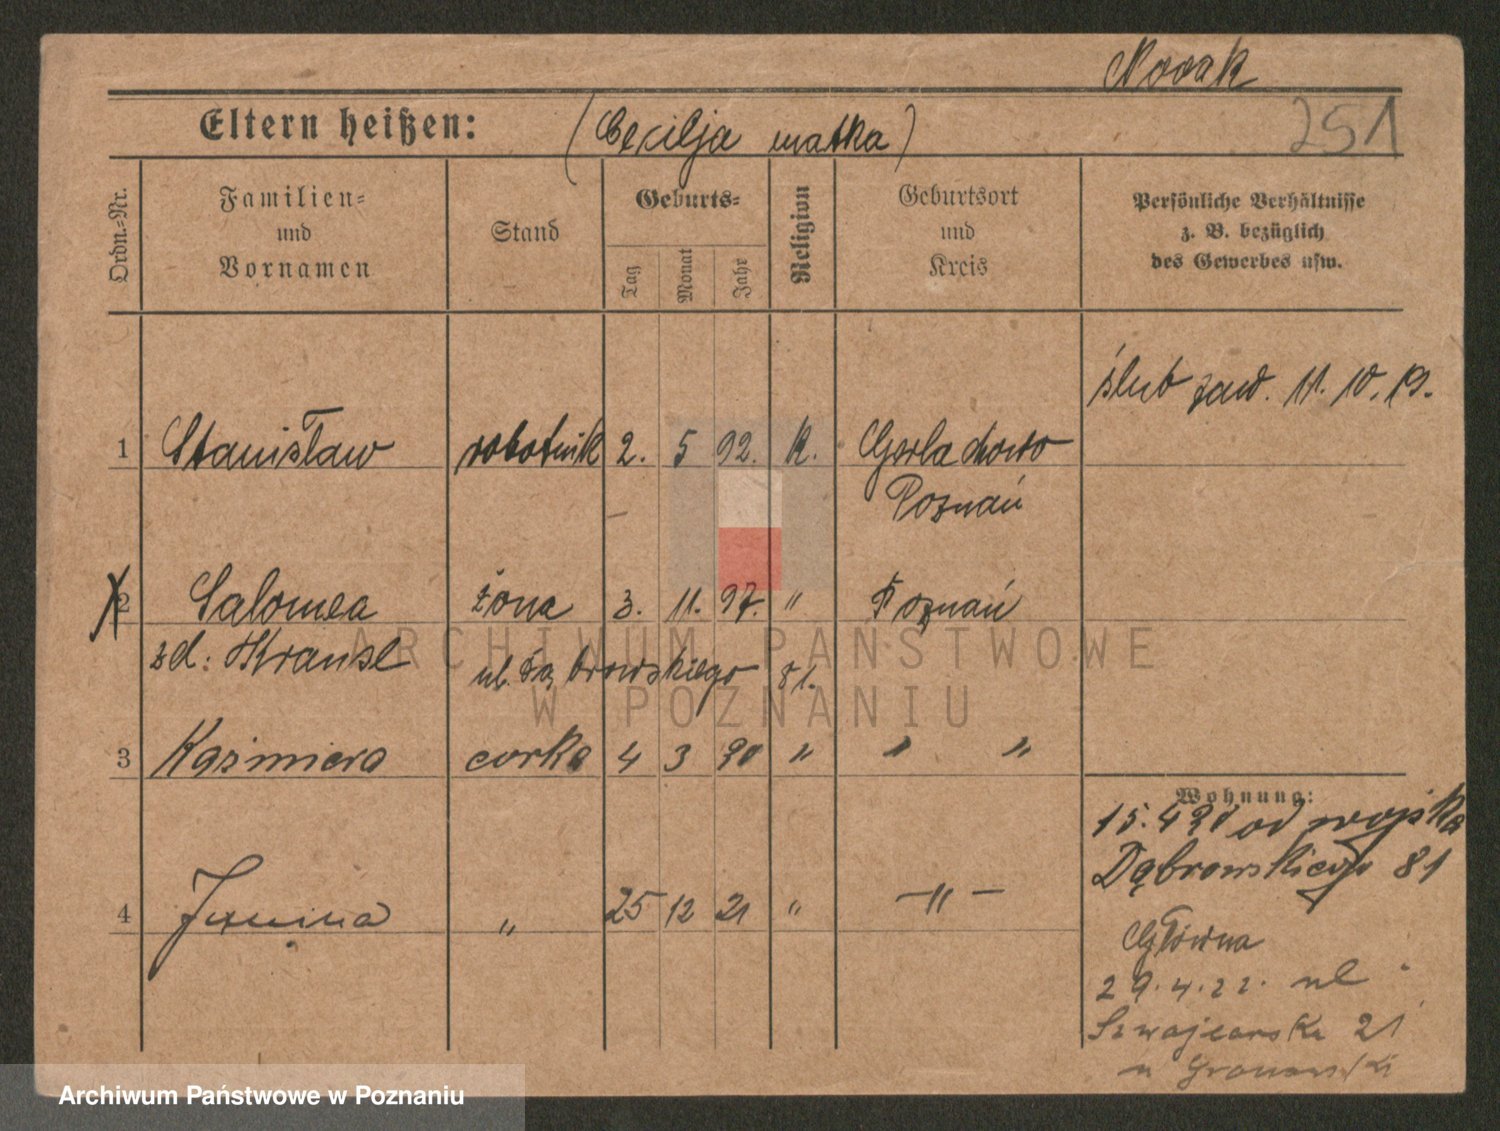 Nowak
Eltern heißen: (Cecilja matka) 251
Ordn.=Nr.
Familien=
und
Vornamen
Stand
Geburts=
Tag
Monat
Jahr
Religion
Geburtsort
und
Kreis
Persönliche Verhältnisse
z. B. bezüglich
des Gewerbes usw.
ślub zaw. 11. 10. 19.
1 Stanisław robotnik 2. 5 92. K.
Poznań
2 Salomea żona 3. 11. 97. " Poznań
zd: ul. Dąbrowskiego 81.
3 Kazimiera corka 4 3 20 " " "
Wohnung:
15. 4 20 od wojska
Dąbrowskiego 81
4 Janina " 25 12 21 " —"—
Główna
29.4.22. ul
Szwajcarska 21
u Gronowski
ARCHIWUM PAŃSTWOWE
W POZNANIU
Archiwum Państwowe w Poznaniu